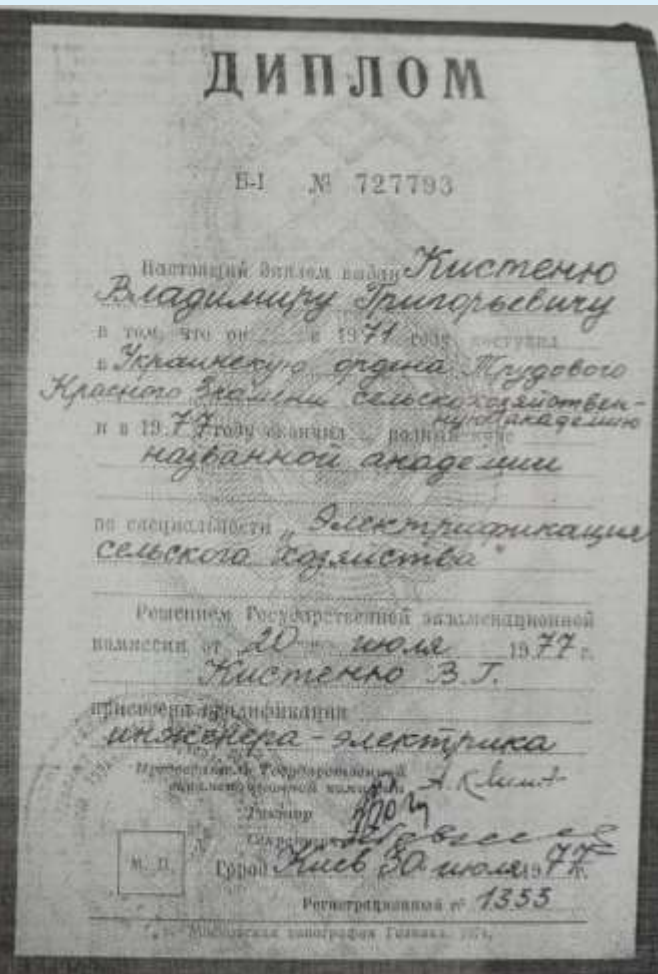 ДИПЛОМ
Б-I № 727793
Настоящий диплом выдан Кистеню
Владимиру Григорьевичу
в том, что он в 1971 году поступил
в Украинскую ордена Трудового
Красного Знамени сельскохозяйствен-
ную академию
и в 1977 году окончил полный курс
названной академии
по специальности „Электрификация
сельского хозяйства"
Решением Государственной экзаменационной
комиссии от 20 июля 1977 г.
Кистеню В.Г.
присвоена квалификация
инженера-электрика
Председатель Государственной
экзаменационной комиссии
Ректор
Секретарь
М. П.
Город Киев 30 июля 1977 г.
Регистрационный № 1353
Московская типография Гознака. 1974.